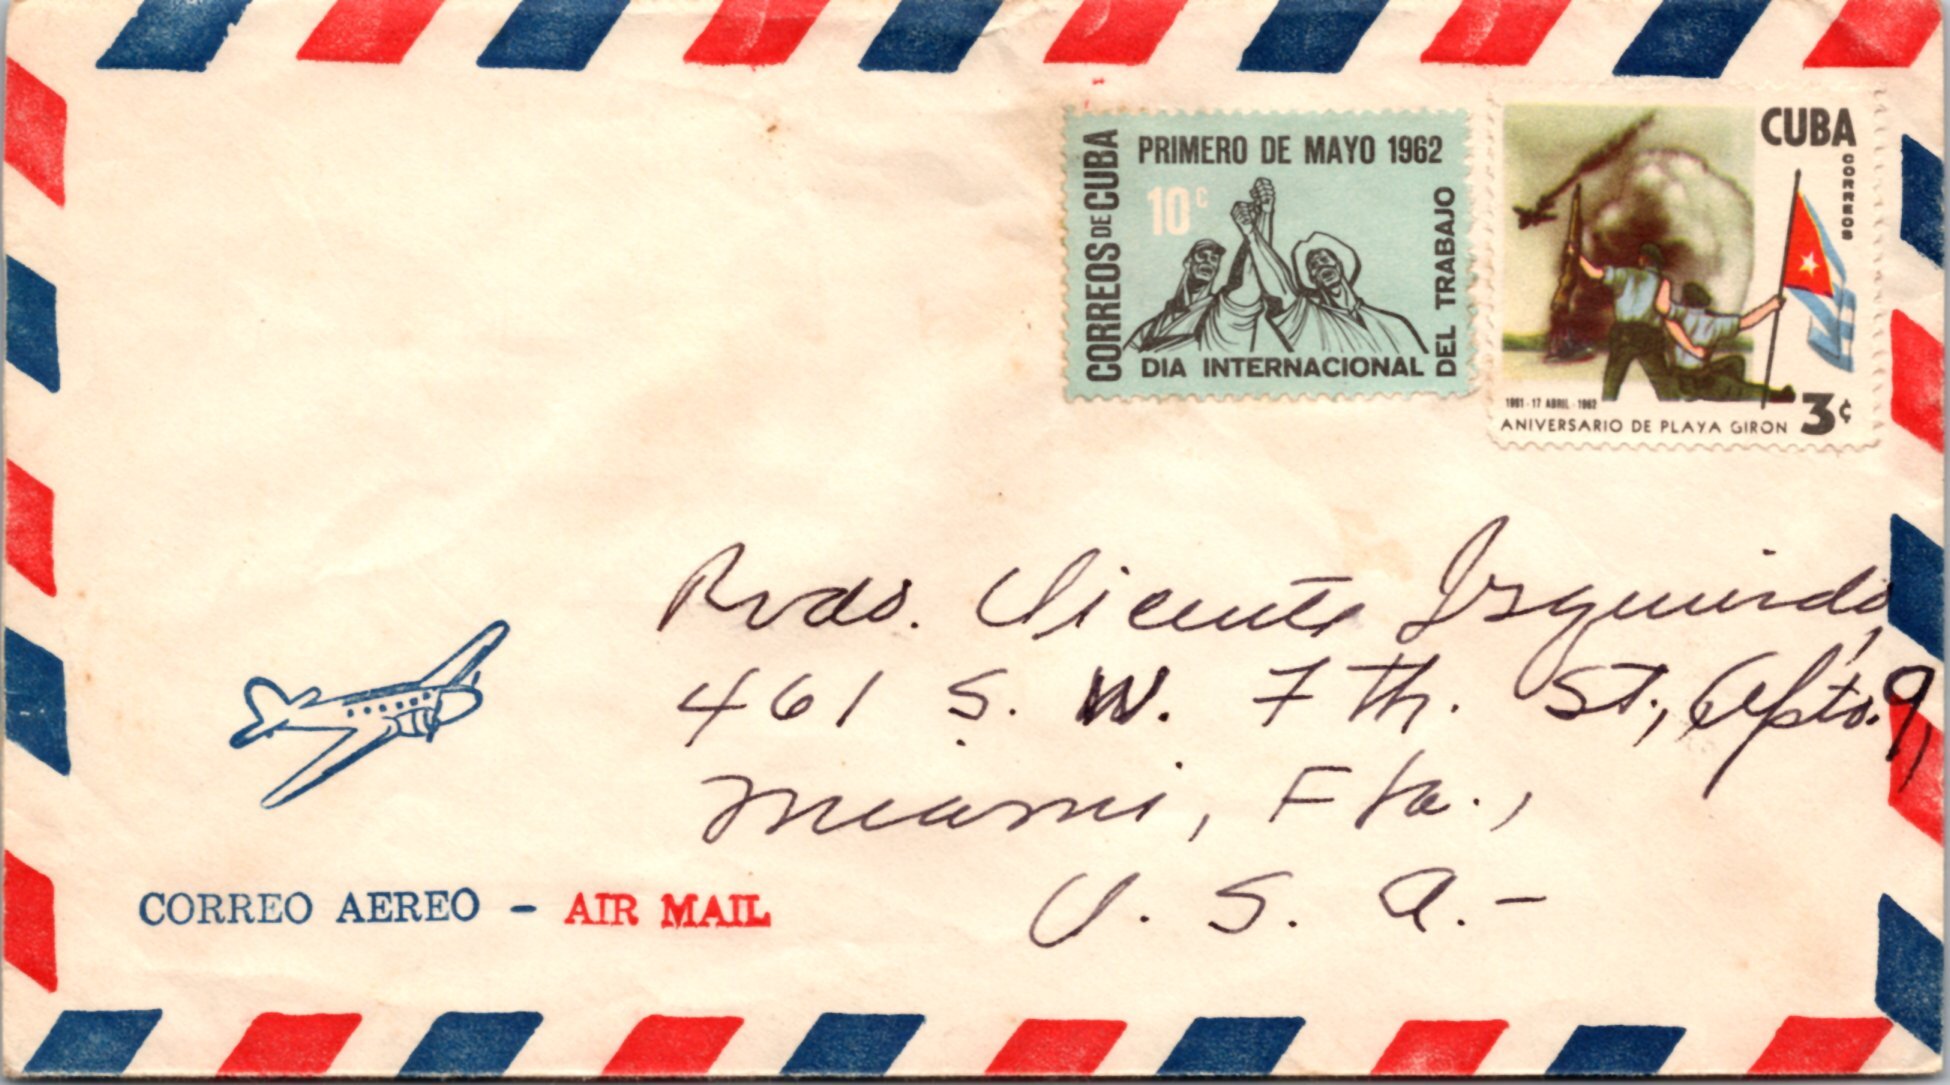 CORREOS DE CUBA
PRIMERO DE MAYO 1962
10¢
DIA INTERNACIONAL
DEL TRABAJO
CUBA
CORREOS
1961 - 17 ABRIL - 1962
ANIVERSARIO DE PLAYA GIRON
3¢
Rvdo. Vicente Izquierdo,
461 S. W. 7th. St., Apto. 9,
Miami, Fla.,
U. S. A.-
CORREO AEREO - AIR MAIL